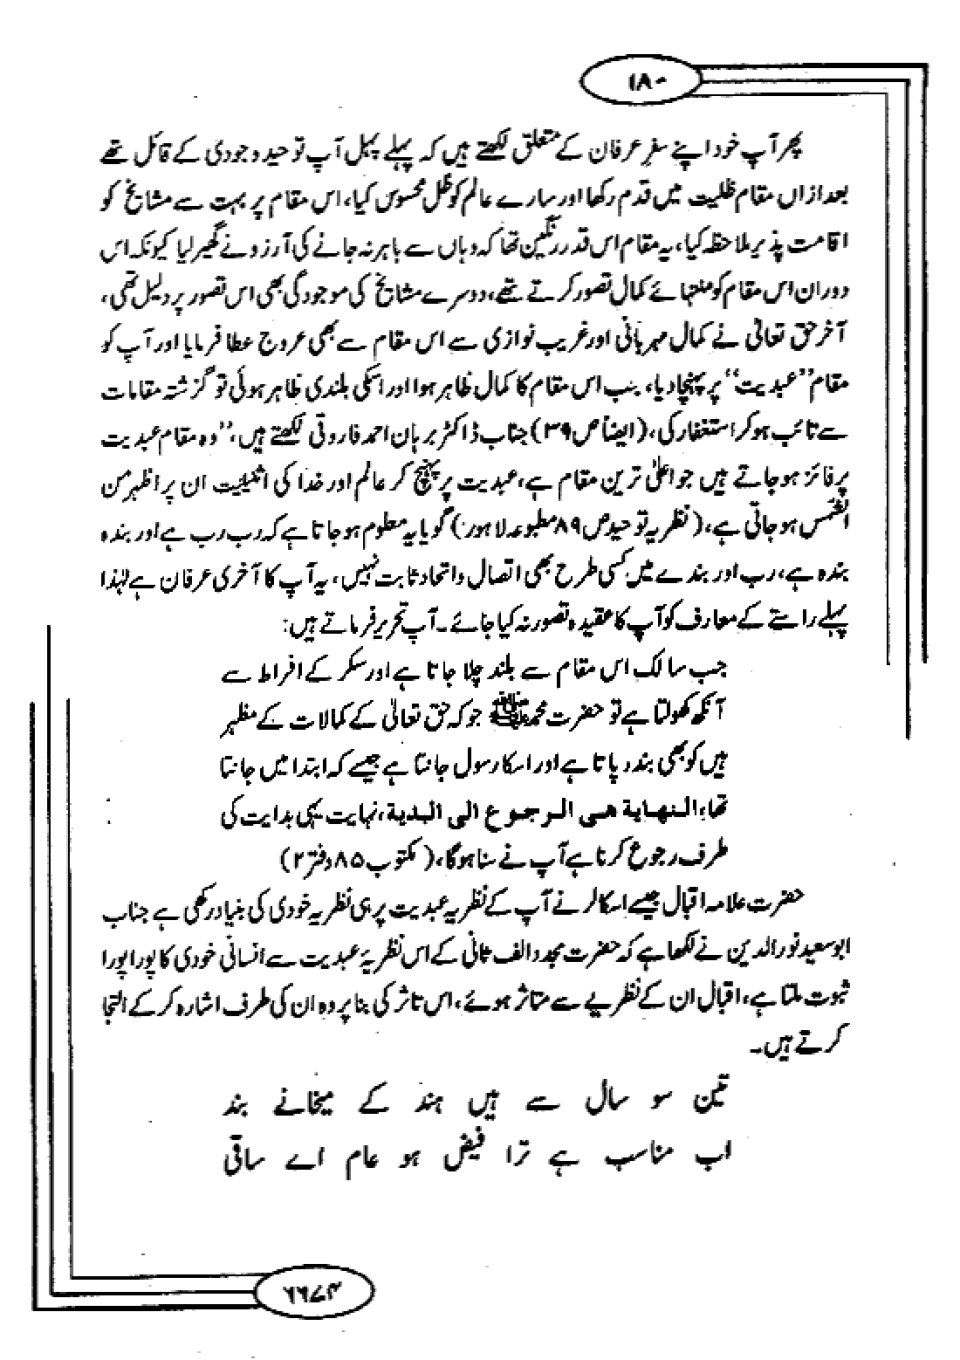 ۱۸۰
پھر آپ خود اپنے سفرِ عرفان کے متعلق لکھتے ہیں کہ پہلے پہل آپ توحید وجودی کے قائل تھے
بعد ازاں مقام ظلیت میں قدم رکھا اور سارے عالم کو ظل محسوس کیا، اس مقام پر بہت سے مشائخ کو
اقامت پذیر ملاحظہ کیا، یہ مقام اس قدر رنگین تھا کہ وہاں سے باہر نہ جانے کی آرزو نے گھیر لیا کیونکہ اس
دوران اس مقام کو منتہائے کمال تصور کرتے تھے، دوسرے مشائخ کی موجودگی بھی اس تصور پر دلیل تھی،
آخر حق تعالیٰ نے کمال مہربانی اور غریب نوازی سے اس مقام سے بھی عروج عطا فرمایا اور آپ کو
مقام "عبدیت" پر پہنچا دیا، جب اس مقام کا کمال ظاہر ہوا اور اسکی بلندی ظاہر ہوئی تو گزشتہ مقامات
سے تائب ہو کر استغفار کی، (ایضاً ص ۳۹) جناب ڈاکٹر برہان احمد فاروقی لکھتے ہیں، "وہ مقام عبدیت
پر فائز ہو جاتے ہیں جو اعلیٰ ترین مقام ہے، عبدیت پر پہنچ کر عالم اور خدا کی اثنینیت ان پر اظہر من
الشمس ہو جاتی ہے، (نظریہ توحید ص ۸۹ مطبوعہ لاہور) گویا یہ معلوم ہو جاتا ہے کہ رب رب ہے اور بندہ
بندہ ہے، رب اور بندے میں کسی طرح بھی اتصال و اتحاد ثابت نہیں، یہ آپ کا آخری عرفان ہے لہٰذا
پہلے راستے کے معارف کو آپ کا عقیدہ تصور نہ کیا جائے۔ آپ تحریر فرماتے ہیں:
جب سالک اس مقام سے بلند چلا جاتا ہے اور سکر کے افراط سے
آنکھ کھولتا ہے تو حضرت محمد ﷺ جو کہ حق تعالیٰ کے کمالات کے مظہر
ہیں کو بھی بندہ پاتا ہے اور اسکا رسول جانتا ہے جیسے کہ ابتدا میں جانتا
تھا، النهاية هى الرجوع الى البدية، نہایت یہی ہدایت کی
طرف رجوع کرنا ہے آپ نے سنا ہوگا، (مکتوب ۸۵ دفتر ۲)
حضرت علامہ اقبال جیسے اسکالر نے آپ کے نظریہ عبدیت پر ہی نظریہ خودی کی بنیاد رکھی ہے جناب
ابو سعید نورالدین نے لکھا ہے کہ حضرت مجدد الف ثانی کے اس نظریہ عبدیت سے انسانی خودی کا پورا پورا
ثبوت ملتا ہے، اقبال ان کے نظریے سے متاثر ہوئے، اس تاثر کی بنا پر وہ ان کی طرف اشارہ کر کے التجا
کرتے ہیں۔
تین سو سال سے ہیں ہند کے میخانے بند
اب مناسب ہے ترا فیض ہو عام اے ساقی